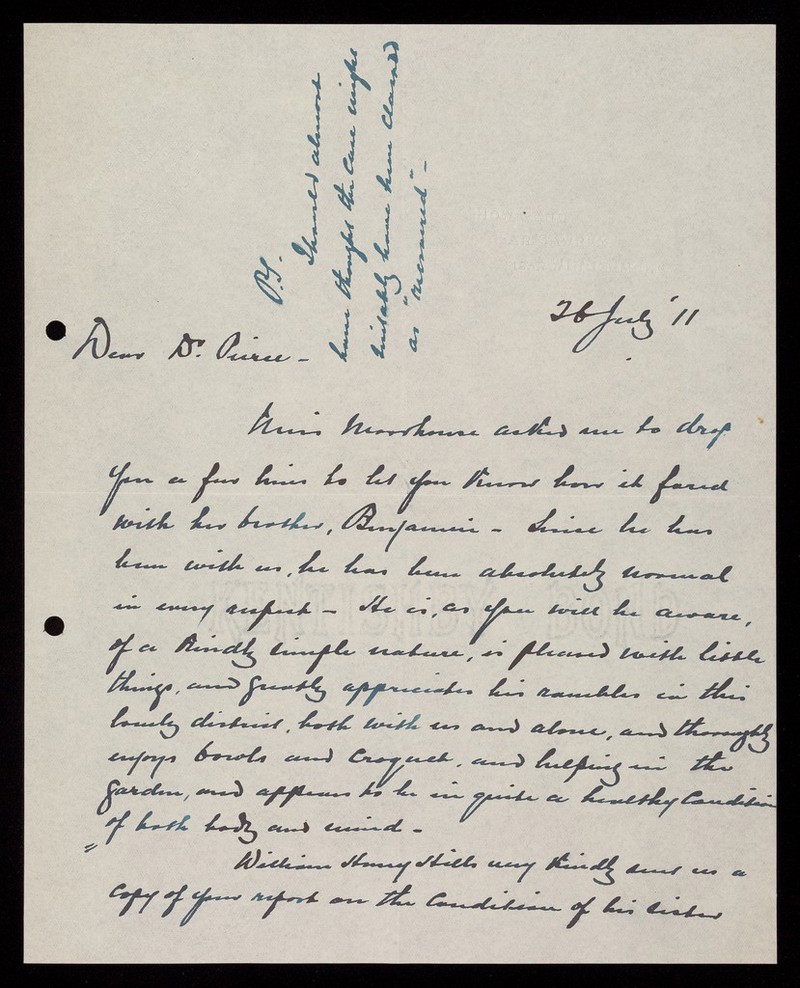 P.S. I should almost
have thought the case might
suitably have been classed
as "recovered" -
26 July '11
Dear Dr. Pierce -
Miss Moorhouse asked me to drop
you a few lines to let you know how it fared
with her brother, Benjamin - Since he has
been with us, he has been absolutely normal
in every respect - He is, as you will be aware,
of a kindly simple nature, is pleased with little
things, and greatly appreciates his rambles in this
lovely district, both with us and alone, and thoroughly
enjoys bowls and croquet, and helping in the
garden, and appears to be in quite a healthy Condition
of both body and mind -
William Henry Hills very kindly sent us a
Copy of your report on the Condition of his sister
KENT BOND